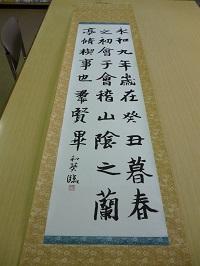 永和九年歳在癸丑暮春
之初會于會稽山陰之蘭
亭脩稧事也羣賢畢
和葵臨